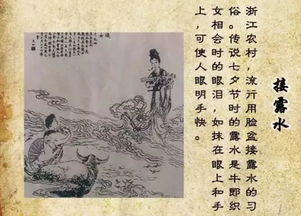 接露水
浙江农村，流行用脸盆接露水的习
俗。传说七夕节时的露水是牛郎织
女相会时的眼泪，如抹在眼上和手
上，可使人眼明手快。